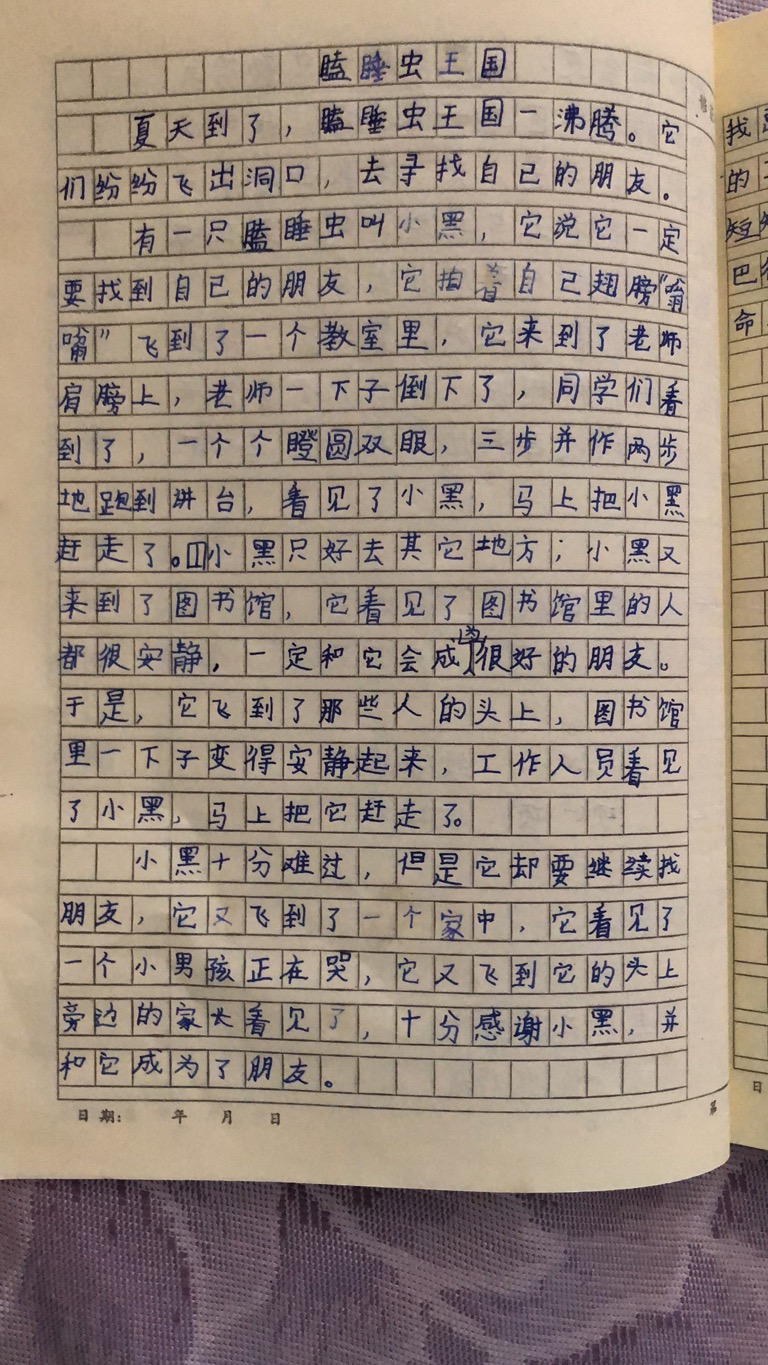 瞌睡虫王国
夏天到了，瞌睡虫王国一沸腾。它
们纷纷飞出洞口，去寻找自己的朋友。
有一只瞌睡虫叫小黑，它说它一定
要找到自己的朋友，它拍着自己翅膀“嗡
嗡”飞到了一个教室里，它来到了老师
肩膀上，老师一下子倒下了，同学们看
到了，一个个瞪圆双眼，三步并作两步
地跑到讲台，看见了小黑，马上把小黑
赶走了。小黑只好去其它地方；小黑又
来到了图书馆，它看见了图书馆里的人
都很安静，一定和它会成为很好的朋友。
于是，它飞到了那些人的头上，图书馆
里一下子变得安静起来，工作人员看见
了小黑，马上把它赶走了。
小黑十分难过，但是它却要继续找
朋友，它又飞到了一个家中，它看见了
一个小男孩正在哭，它又飞到它的头上
旁边的家长看见了，十分感谢小黑，并
和它成为了朋友。
日期： 年 月 日
找
的
短
巴
命
日